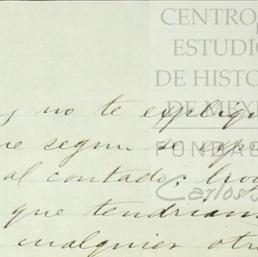 CENTRO
ESTUDIO
DE HISTOR
DE MEXI
FUNDAC
Carlos
no te expliqu
segun se
al contado;
que tendriam
cualquier otr